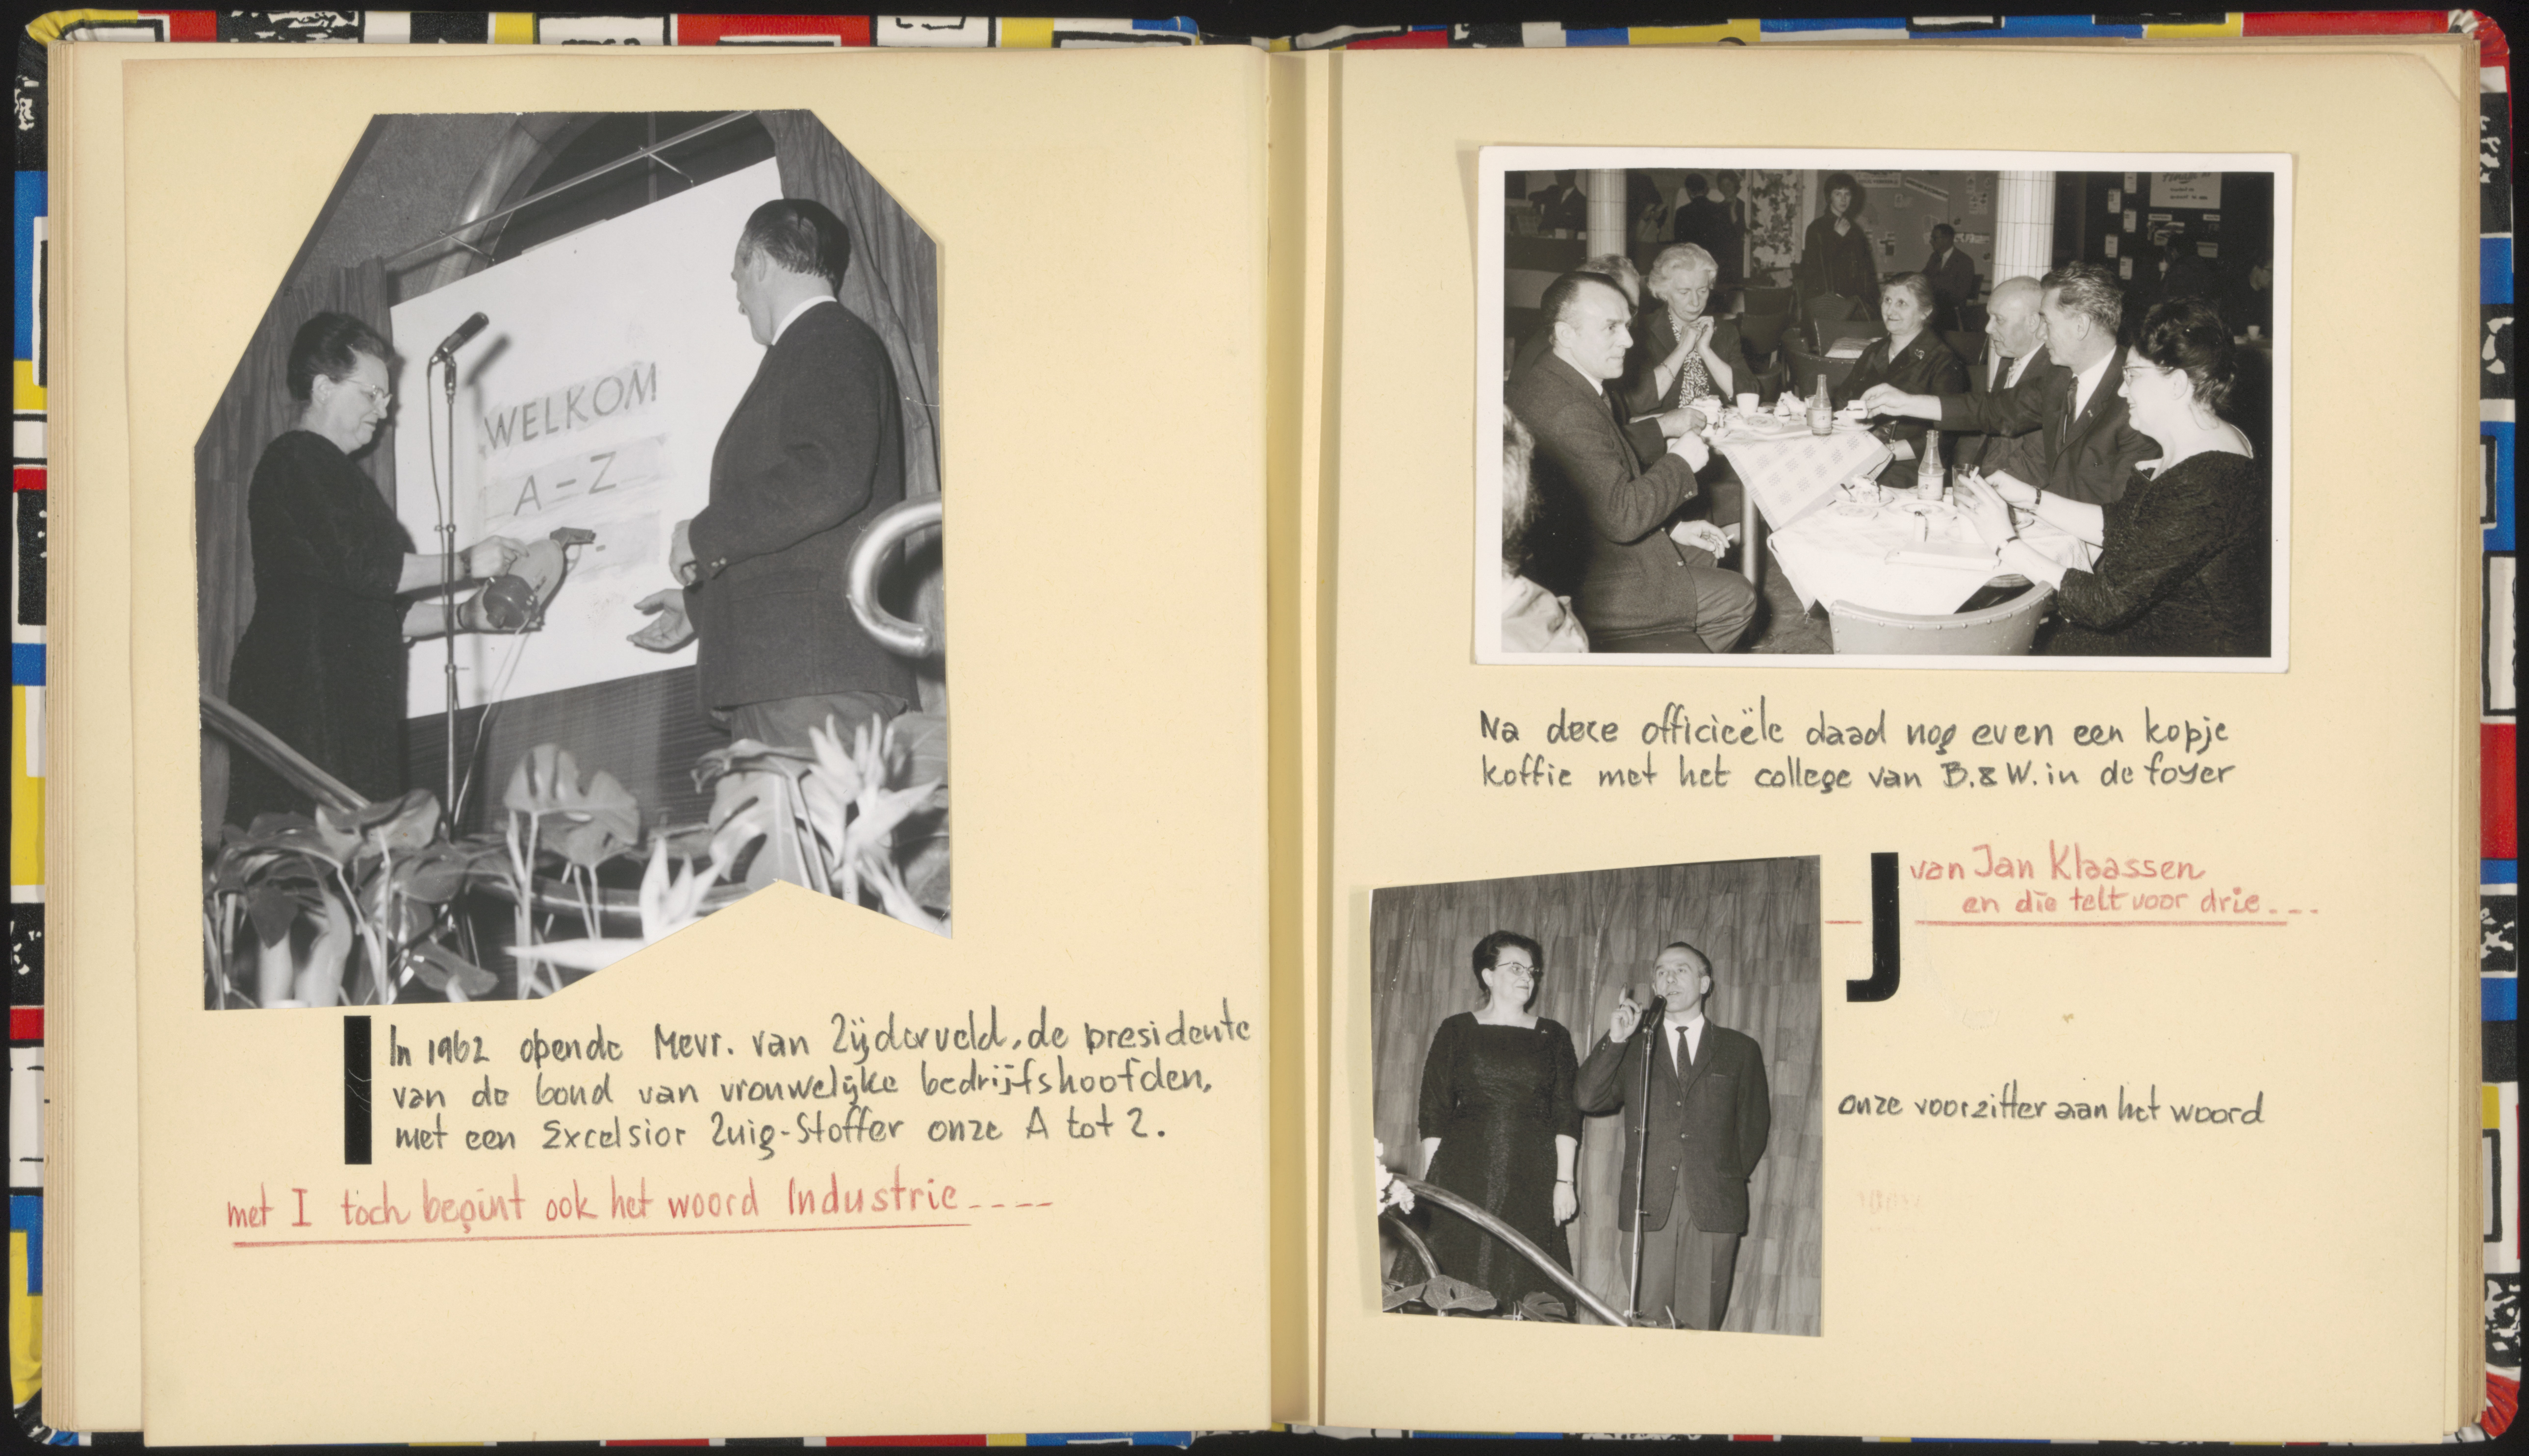 WELKOM
A-Z
I
In 1962 opende Mevr. van Zijderveld, de presidente
van de bond van vrouwelijke bedrijfshoofden,
met een Excelsior Zuig-Stoffer onze A tot Z.
met I toch begint ook het woord Industrie----
Na deze officieële daad nog even een kopje
koffie met het college van B.&W. in de foyer
J van Jan Klaassen
en die telt voor drie---
onze voorzitter aan het woord